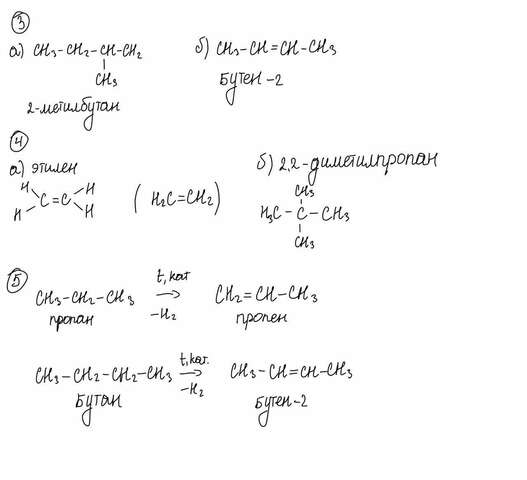 3
а) CH₃-CH₂-CH-CH₂
CH₃
2-метилбутан
б) CH₃-CH=CH-CH₃
Бутен-2
4
а) этилен
H H
C=C
H H
(H₂C=CH₂)
б) 2,2-диметилпропан
CH₃
H₃C-C-CH₃
CH₃
5
CH₃-CH₂-CH₃ t, кат -H₂ CH₂=CH-CH₃
пропан пропен
CH₃-CH₂-CH₂-CH₃ t, кат. -H₂ CH₃-CH=CH-CH₃
Бутан Бутен-2